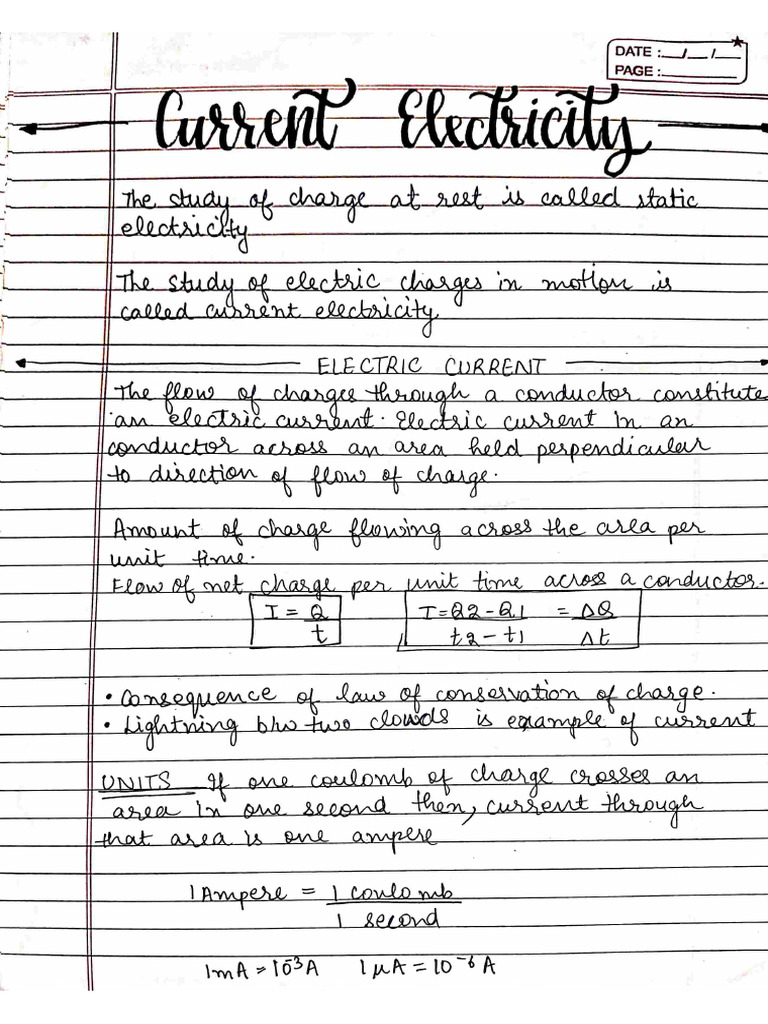 DATE :__/__/__
PAGE :________
Current Electricity
The study of charge at rest is called static
electricity
The study of electric charges in motion is
called current electricity
ELECTRIC CURRENT
The flow of charges through a conductor constitute
an electric current. Electric current in an
conductor across an area held perpendicular
to direction of flow of charge.
Amount of charge flowing across the area per
unit time.
Flow of net charge per unit time across a conductor.
I = Q/t   I = Q2-Q1/t2-t1 = ΔQ/Δt
• Consequence of law of conservation of charge.
• Lightning b/w two clouds is example of current
UNITS If one coulomb of charge crosses an
area in one second then, current through
that area is one ampere
1 Ampere = 1 coulomb/1 second
1mA = 10⁻³A   1μA = 10⁻⁶ A